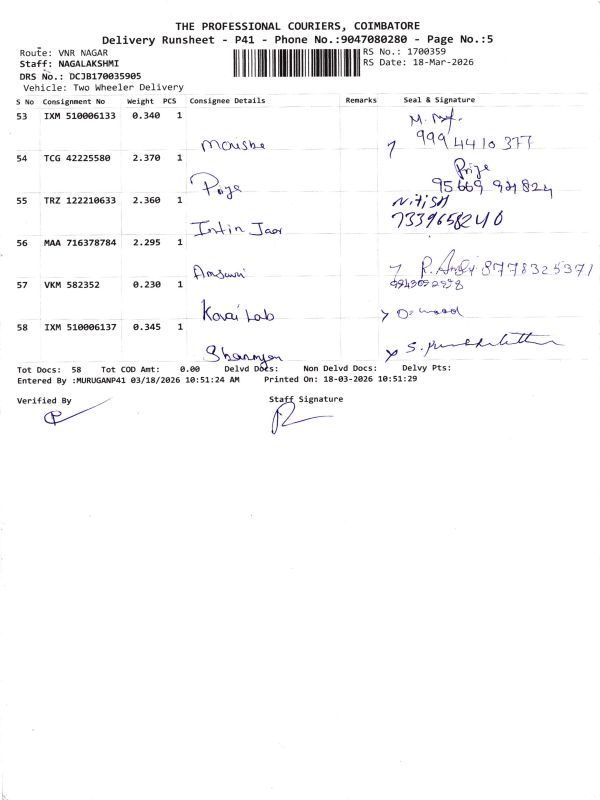 THE PROFESSIONAL COURIERS, COIMBATORE
Delivery Runsheet - P41 - Phone No.:9047080280 - Page No.:5
Route: VNR NAGAR
RS No.: 1700359
Staff: NAGALAKSHMI
RS Date: 18-Mar-2026
DRS No.: DCJB170035905
Vehicle: Two Wheeler Delivery
S No Consignment No Weight PCS Consignee Details Remarks Seal & Signature
53 IXM 510006133 0.340 1
999 4410 377
54 TCG 42225580 2.370 1
Priya
55 TRZ 122210633 2.360 1 Nitish
7339658240
56 MAA 716378784 2.295 1
8778325371
57 VKM 582352 0.230 1
Kovai Lab
58 IXM 510006137 0.345 1
Tot Docs: 58 Tot COD Amt: 0.00 Delvd Docs: Non Delvd Docs: Delvy Pts:
Entered By :MURUGANP41 03/18/2026 10:51:24 AM Printed On: 18-03-2026 10:51:29
Verified By Staff Signature